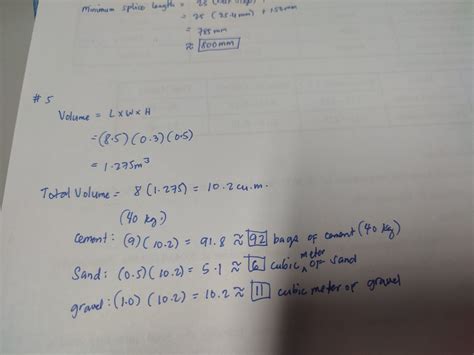 Minimum splice length = 25
= 25 (25.4mm) + 152mm
= 785mm
≈ 800mm
#5
Volume = L x W x H
= (8.5) (0.3) (0.5)
= 1.275m³
Total Volume = 8 (1.275) = 10.2 cu.m.
(40 kg)
Cement: (9) (10.2) = 91.8 ≈ 92 bags of cement (40 kg)
Sand: (0.5) (10.2) = 5.1 ≈ 6 cubic meter of sand
gravel: (1.0) (10.2) = 10.2 ≈ 11 cubic meter of gravel